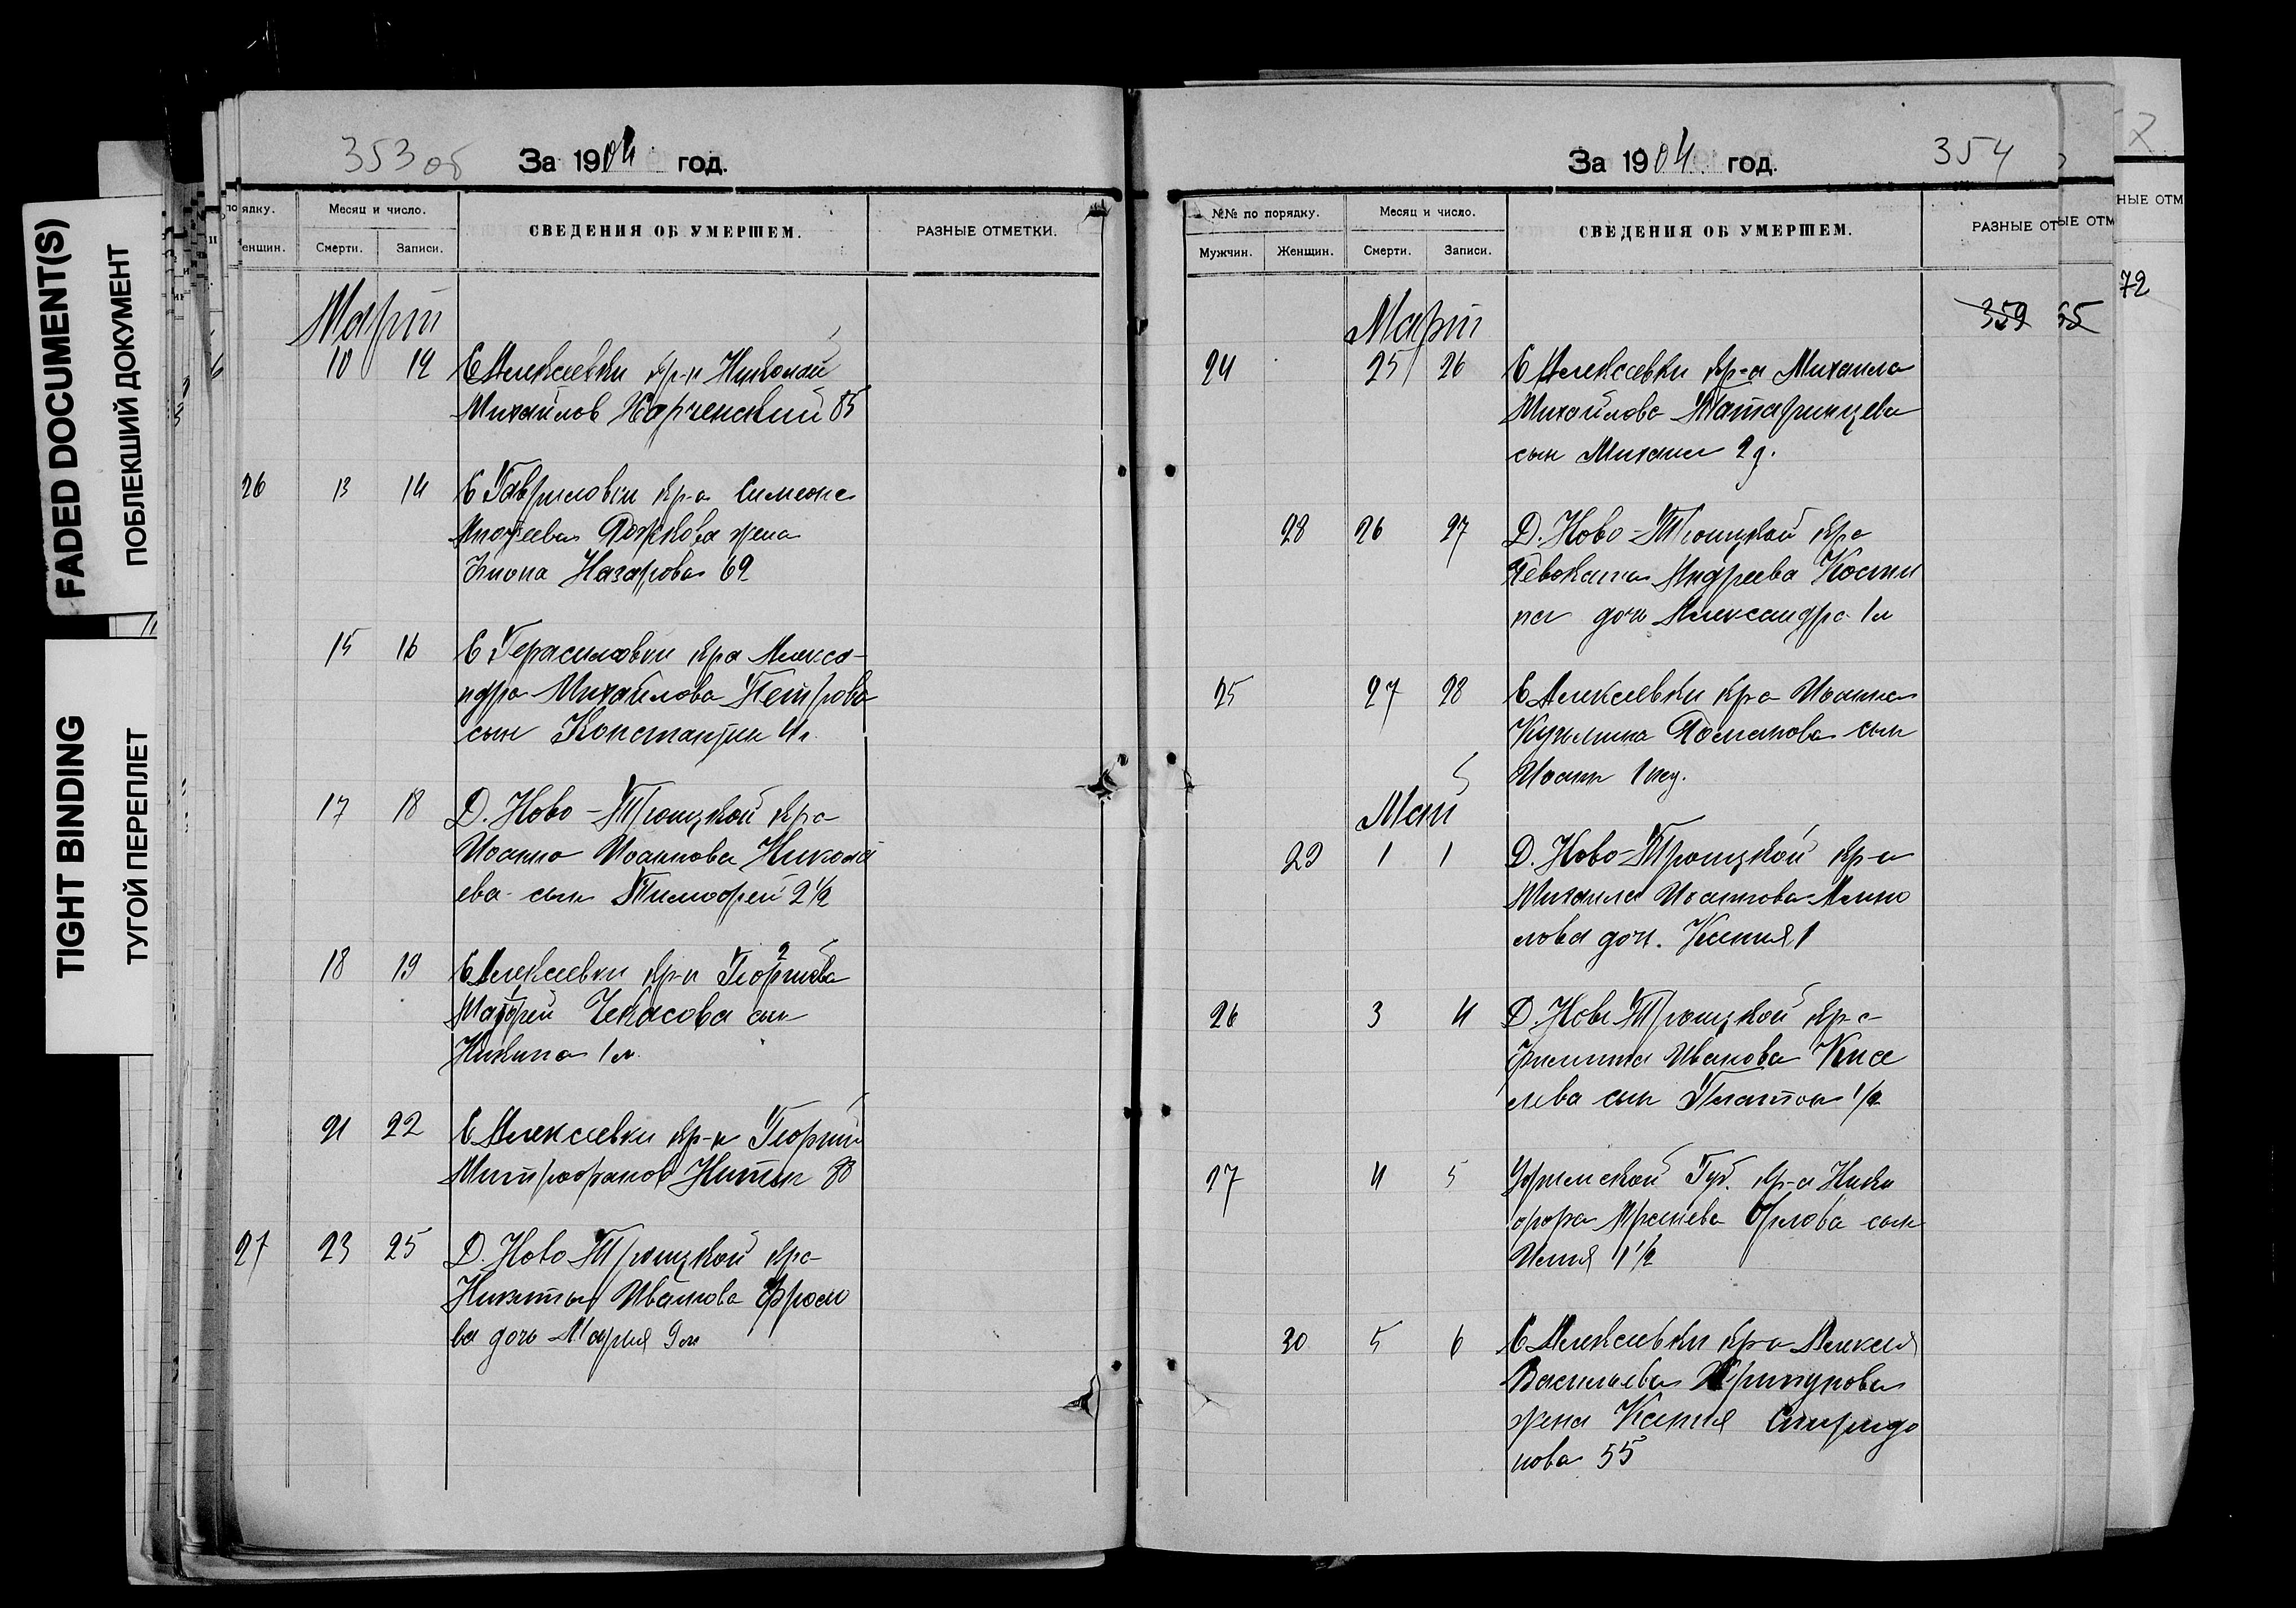 FADED DOCUMENT(S)
ПОБЛЕКШИЙ ДОКУМЕНТ
TIGHT BINDING
ТУГОЙ ПЕРЕПЛЕТ
353 об
За 1904 год.
по
ядку.
Месяц и число.
СВЕДЕНИЯ ОБ УМЕРШЕМ.
РАЗНЫЕ ОТМЕТКИ.
енщин.
Смерти.
Записи.
Март
10 12 С Алексеевки кр-н Николай
Михайлов Харченский 85
26 13 14 С Гавриловки кр-а Симеона
Рожкова жена
Назарова 69
15 16 С Герасимовки кр-а Алекса-
ндра Михайлова Петрова
сын Константин
17 18 Д. Ново-Троицкой кр-а
Иоанна Иоаннова Никола
ева сын Тимофей 2 1/2
18 19 С Алексеевки кр-н Георгиева
Чекасова сын
Никита 1 м.
21 22 С Алексеевки кр-н Георгий
Митрофанов Никитин
27 23 25 Д. Ново Троицкой кр-а
Никиты Иванова Фроло
ва дочь Мария 9 м
За 1904 год.
354
№№ по порядку.
Месяц и число.
СВЕДЕНИЯ ОБ УМЕРШЕМ.
РАЗНЫЕ ОТ
ЫЕ ОТМ
НЫЕ ОТМ
Мужчин.
Женщин.
Смерти.
Записи.
359
65
72
Март
24 25 26 С Алексеевки кр-а Михаила
Михайлова Татаринцева
сын Михаил 2 д.
28 26 27 Д. Ново-Троицкой кр-а
Андреева Кости
на дочь Александра 1 м
25 27 28 С Алексеевки кр-а Иоанна
Кузьмина Романова сын
Иоанн 1 нед.
Май
29 1 1 Д. Ново-Троицкой кр-н
Михаила Иоаннова
лова доч. Ксения 1
26 3 4 Д. Ново Троицкой кр-а
Филиппа Иванова Кисе
лева сын Платон 1/2
27 4 5 Уфимской Губ. кр-а Ники
фора Орлова сын
Илия 1 1/2
30 5 6 С Алексеевки кр-а Алексея
Васильева Хрипунова
жена Ксения Спиридо
нова 55